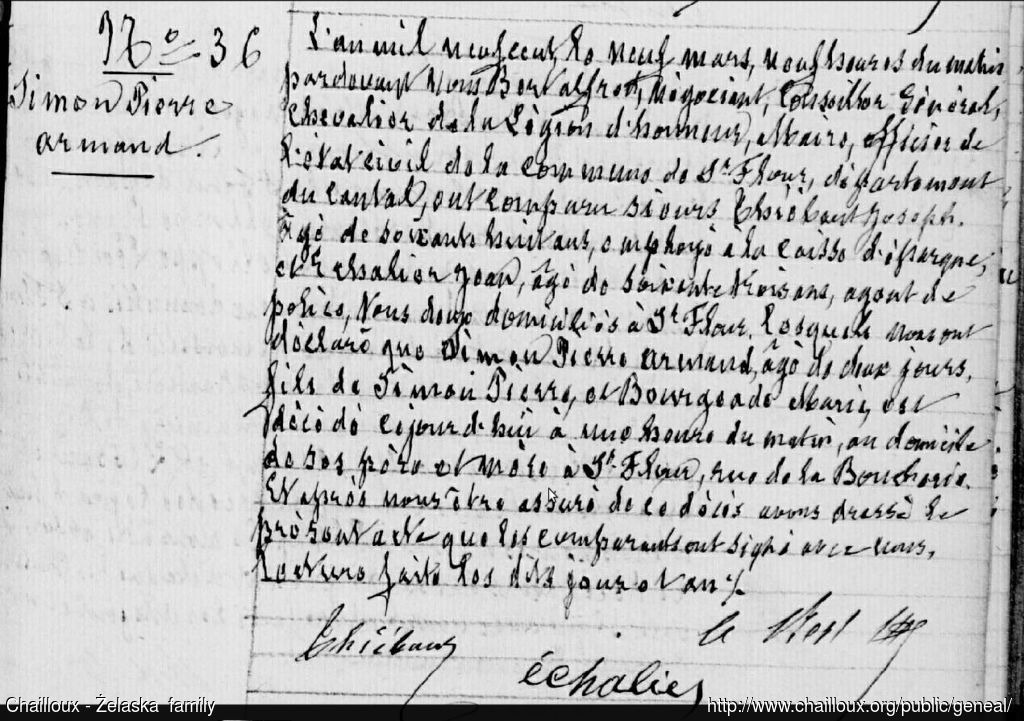 N° 36
Simon Pierre
armand.
L'an mil neuf cent, le neuf mars, neuf heures du matin
pardevant Nous Bory alfred, négociant, Conseiller Général,
Chevalier de la Légion d'honneur, Maire, officier de
l'état civil de la commune de St Flour, département
du Cantal, ont comparu sieurs Thiébaut Joseph.
âgé de soixante huit ans, employé a la caisse d'épargne,
et Echalier Jean, âgé de soixante trois ans, agent de
police, tous deux domiciliés à St Flour. lesquels nous ont
déclaré que Simon Pierre armand, âgé de deux jours,
fils de Simon Pierre, et Bourgeade Marie, est
décédé cejourd'hui à une heure du matin, au domicile
de ses père et mère à St Flour, rue de la Boucherie.
Et après nous être assuré de ce décès avons dressé le
présent acte que les comparants ont signé avec nous,
Lecture faite les dits jour et an ./.
Thiébaut
échalier
Chailloux - Żelaska family
http://www.chailloux.org/public/geneal/